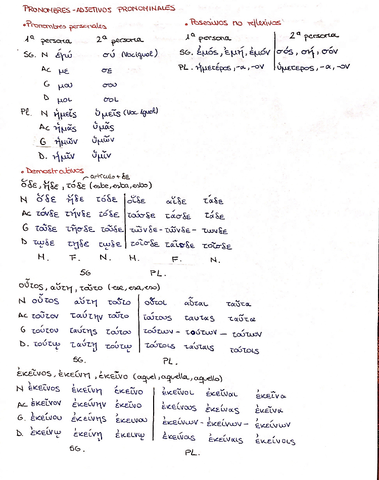 PRONOMBRES - ADJETIVOS PRONOMINALES
• Pronombres personales
1ª persona 2ª persona
SG. N ἐγώ σύ (Voc igual)
Ac με σε
G μου σου
D μοι σοι
PL. N ἡμεῖς ὑμεῖς (Voc igual)
Ac ἡμᾶς ὑμᾶς
G ἡμῶν ὑμῶν
D. ἡμῖν ὑμῖν
• Posesivos no reflexivos
1ª persona 2ª persona
SG. ἐμός, ἐμή, ἐμόν σός, σή, σόν
PL. ἡμέτερος, -α, -ον ὑμέτερος, -α, -ον
• Demostrativos
artículo + δε
ὅδε, ἥδε, τόδε (este, esta, esto)
N ὅδε ἥδε τόδε οἵδε αἵδε τάδε
Ac τόνδε τήνδε τόδε τούσδε τάσδε τάδε
G τοῦδε τῆσδε τοῦδε τῶνδε - τῶνδε - τωνδε
D τῳδε τῃδε τῳδε τοῖσδε ταῖσδε τοῖσδε
M. F. N M. F. N.
SG PL.
οὗτος, αὕτη, τοῦτο (ese, esa, eso)
N οὗτος αὕτη τοῦτο οὗτοι αὗται ταῦτα
Ac τοῦτον ταύτην τοῦτο τούτους ταυτας ταῦτα
G τούτου ταύτης τούτου τούτων - τούτων - τούτων
D. τούτῳ ταύτῃ τούτῳ τούτοις ταύταις τούτοις
SG. PL.
ἐκεῖνος, ἐκείνη, ἐκεῖνο (aquel, aquella, aquello)
N ἐκεῖνος ἐκείνη ἐκεῖνο ἐκεῖνοι ἐκεῖναι ἐκεῖνα
Ac ἐκεῖνον ἐκείνην ἐκεῖνο ἐκείνους ἐκείνας ἐκεῖνα
G. ἐκείνου ἐκείνης ἐκείνου ἐκείνων - ἐκείνων - ἐκείνων
D. ἐκείνῳ ἐκείνῃ ἐκείνῳ ἐκείναις ἐκείνοις
SG. PL.